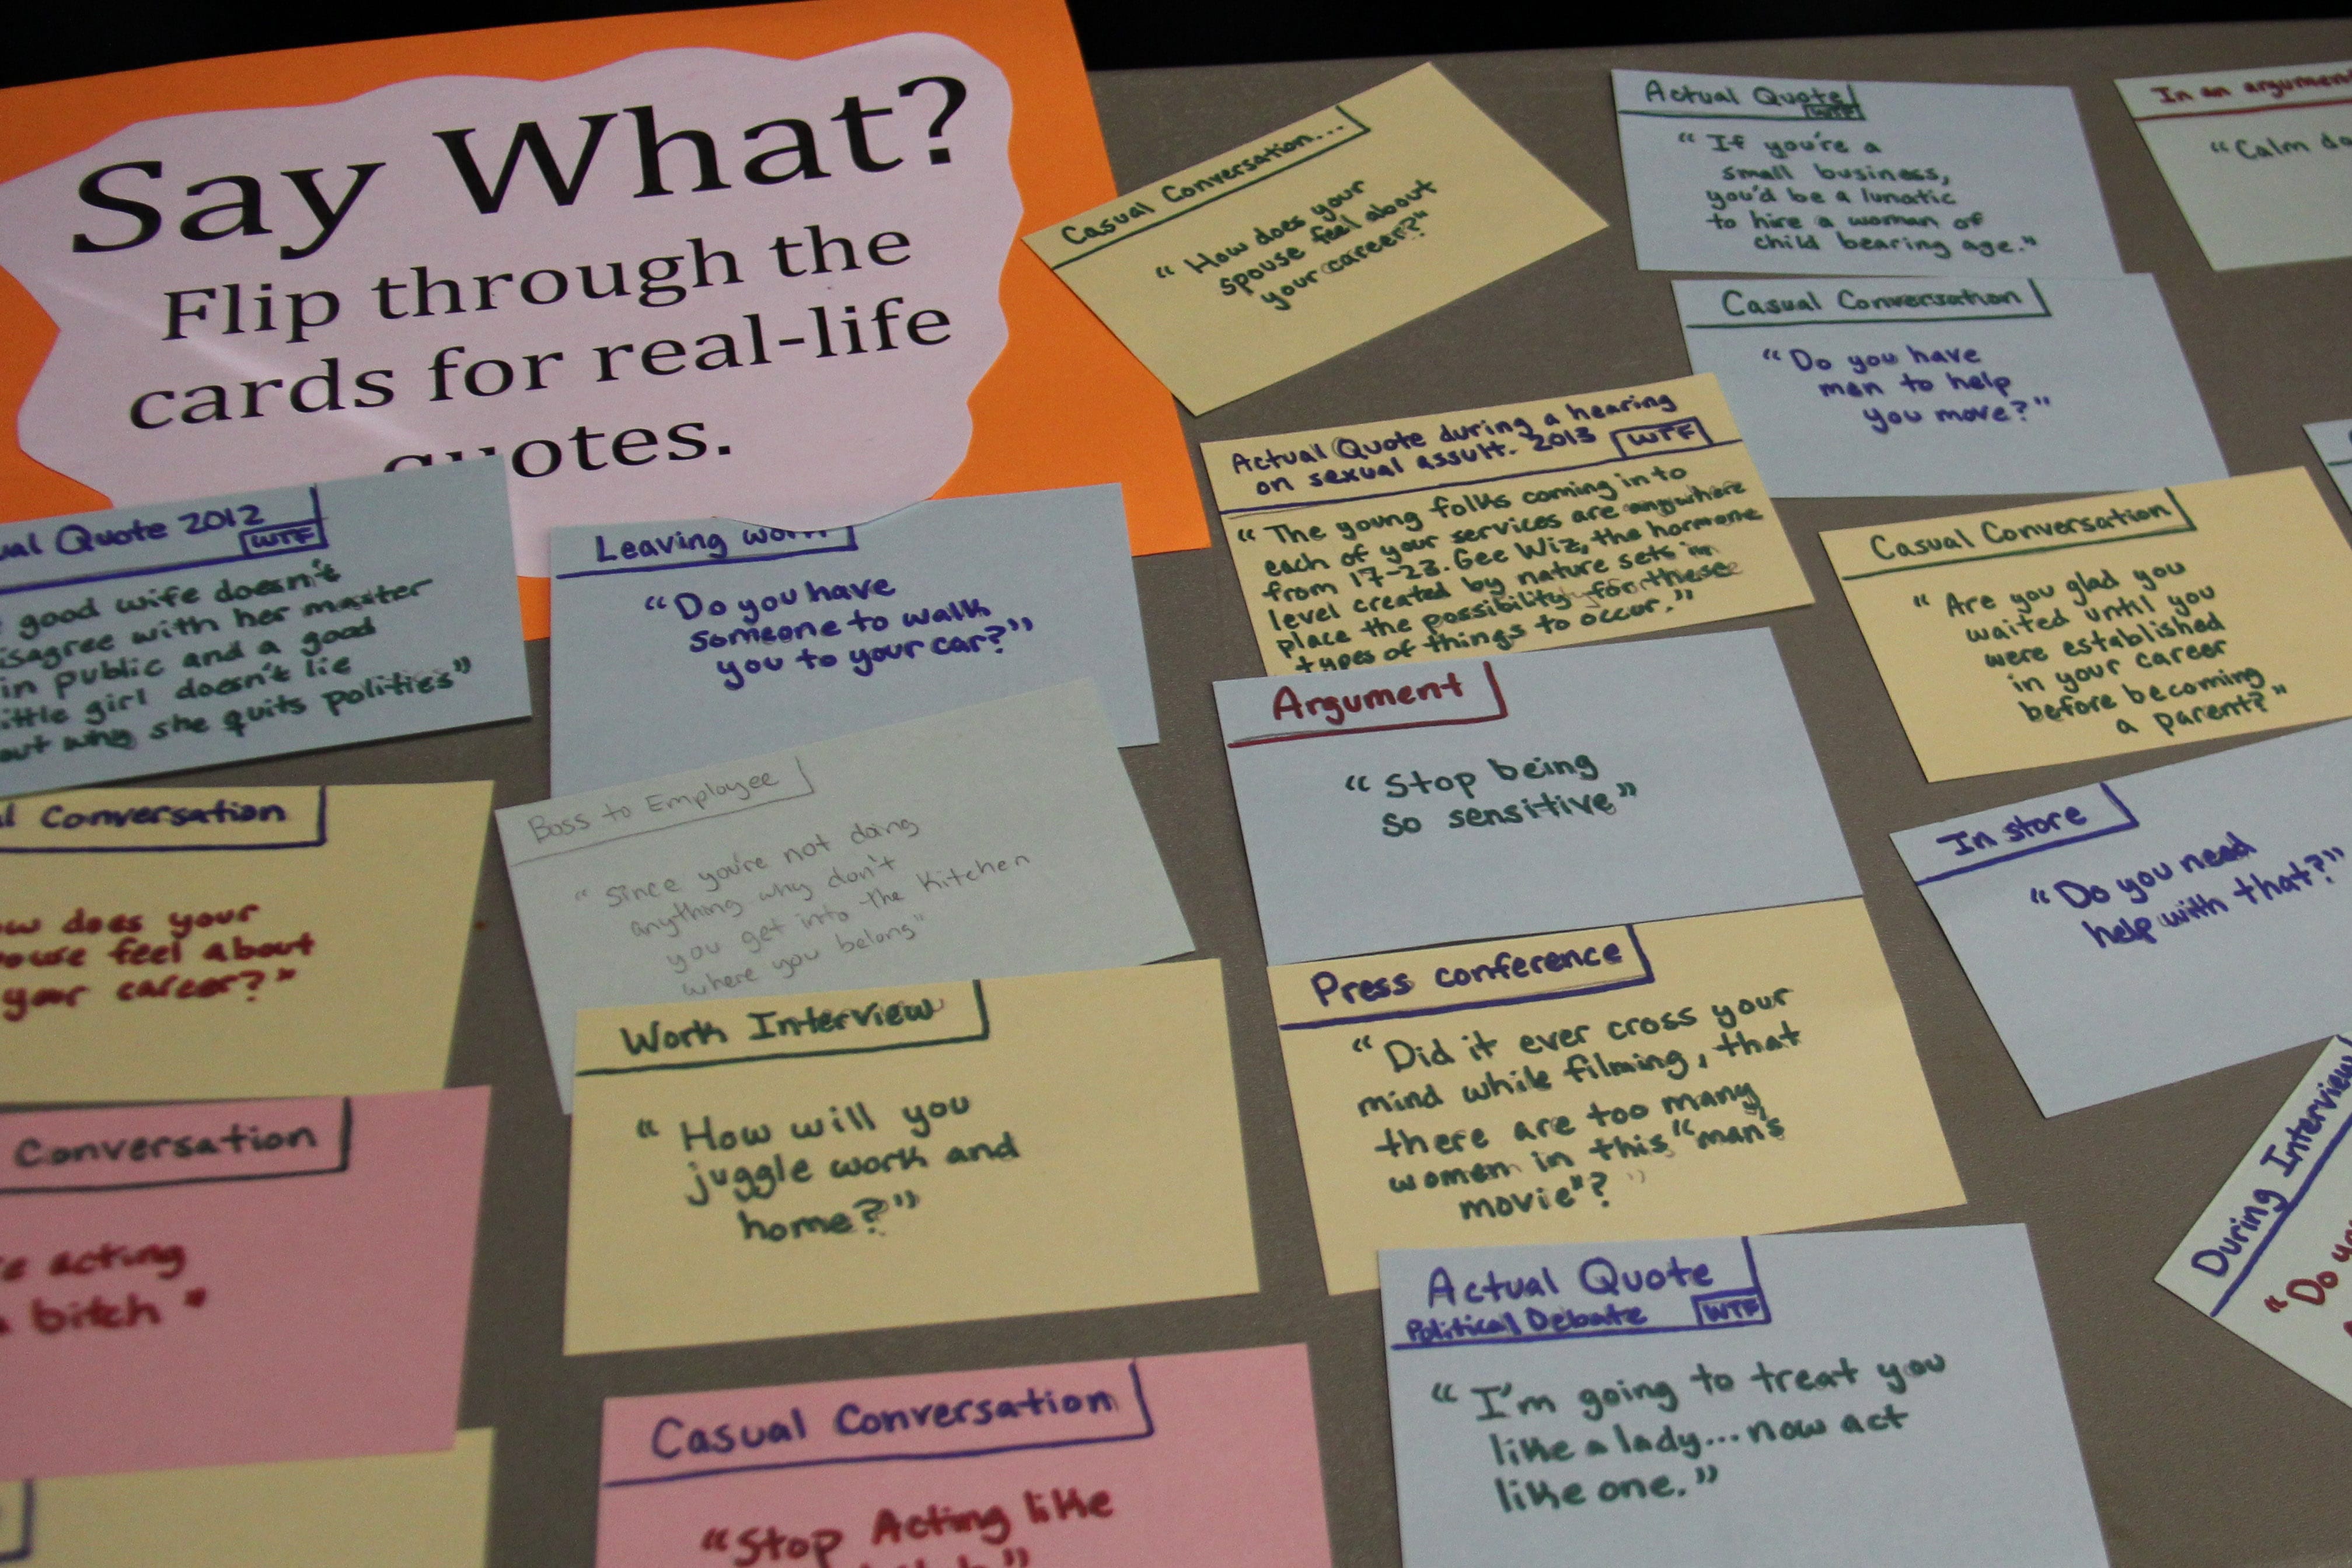 Say What?
Flip through the
cards for real-life
quotes.
Casual Conversation...
" How does your
spouse feel about
your career?"
Actual Quote
WTF
" If you're a
small business,
you'd be a lunatic
to hire a woman of
child bearing age."
In an argument
"Calm
Casual Conversation
"Do you have
men to help
you move?"
Actual Quote during a hearing
on sexual assult. 2013 WTF
" The young folks coming in to
each of your services are anywhere
from 17-23. Gee Wiz, the hormone
level created by nature sets in
place the possibility for these
types of things to occur."
Casual Conversation
" Are you glad you
waited until you
were established
in your career
before becoming
a parent?"
Quote 2012
WTF
good wife doesn't
disagree with her master
in public and a good
little girl doesn't lie
why she quits politics"
Leaving work
"Do you have
someone to walk
you to your car?"
Argument
" Stop being
so sensitive"
In store
"Do you need
help with that?"
Conversation
does your
feel about
your career?"
Boss to Employee
" Since you're not doing
anything why don't
you get into the Kitchen
where you belong"
Press conference
"Did it ever cross your
mind while filming, that
there are too many
women in this "man's
movie"? "
Work Interview
" How will you
juggle work and
home?"
During Interview
"Do
Conversation
acting
bitch "
Actual Quote
Political Debate WTF
" I'm going to treat you
like a lady...now act
like one."
Casual Conversation
"Stop Acting like